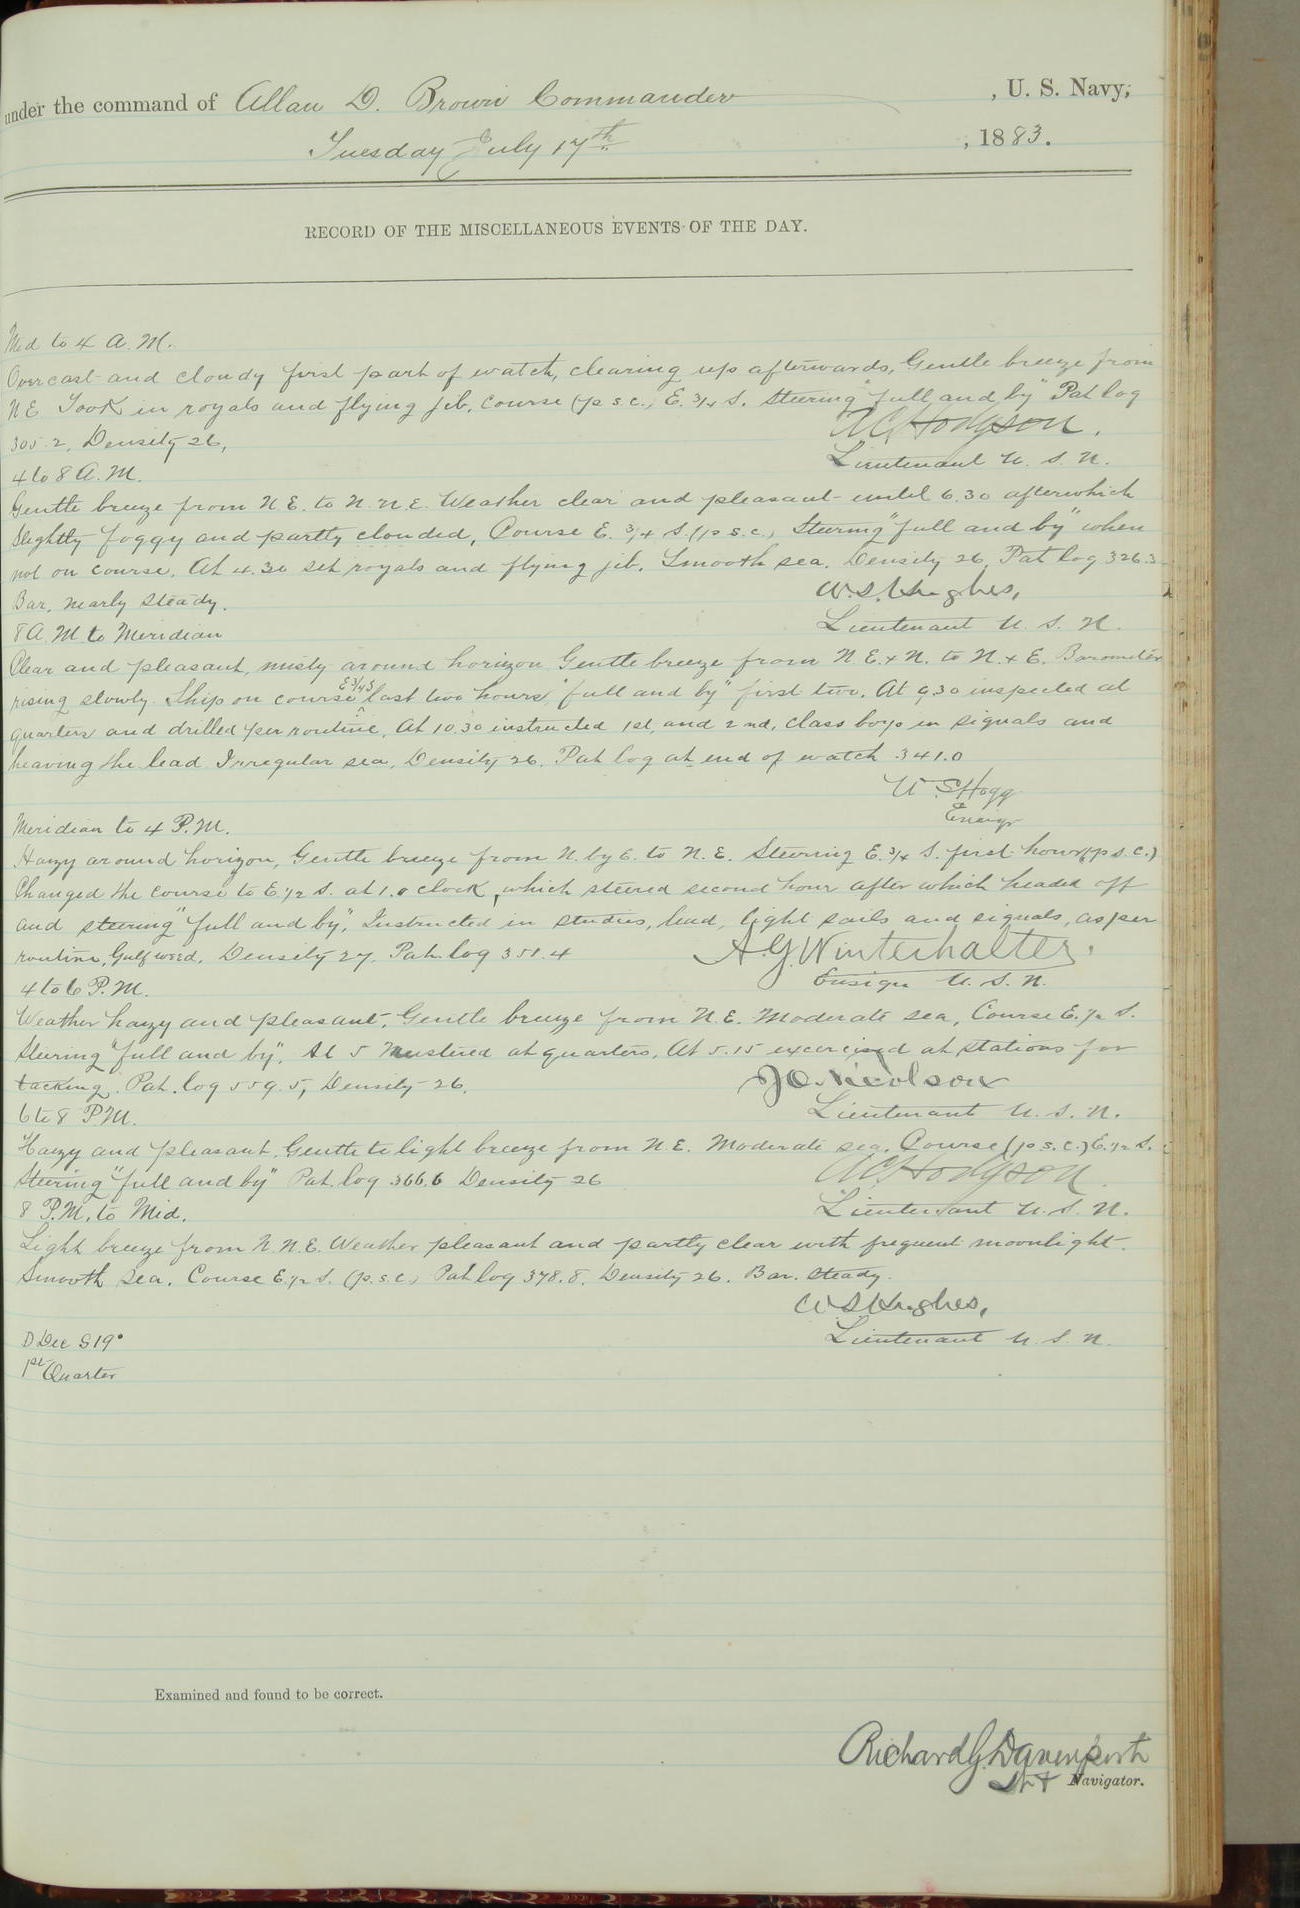 under the command of Allan D. Brown Commander , U. S. Navy,
Tuesday July 17th , 1883.
RECORD OF THE MISCELLANEOUS EVENTS OF THE DAY.
Mid to 4 A.M.
Overcast and cloudy first part of watch, clearing up afterwards, Gentle breeze from
N E Took in royals and flying jib, Course (p s.c., E. 3/4 S. Steering "full and by" Pat log
305.2, Density 26,
A C Hodgson.
Lieutenant U. S. N.
4 to 8 A.M.
Gentle breeze from N E. to N. N. E. Weather clear and pleasant until 6.30 afterwhich
slightly foggy and partly clouded, Course E. 3/4 S. (p s.c., Steering "full and by" when
not on course. At 4.30 set royals and flying jib. Smooth sea. Density 26, Pat log 326.3
Bar. nearly steady.
W. S. Hughes,
Lieutenant U. S. N.
8 A. M. to Meridian
Clear and pleasant, misty around horizon Gentle breeze from N. E. x N. to N. x E. Barometer
rising slowly. Ship on course E 3/4 S last two hours, "full and by" first two. At 9.30 inspected at
quarters and drilled per routine, At 10.30 instructed 1st, and 2nd, class boys in signals and
heaving the lead. Irregular sea, Density 26. Pat log at end of watch 341.0
W S Hogg
Ensign
Meridian to 4 P.M.
Hazy around horizon, Gentle breeze from N. by E. to N. E. Steering E. 3/4 S. first hour (p s.c.)
Changed the course to E 1/2 S. at 1. o clock, which steered second hour after which headed off
and steering "full and by", Instructed in studies, lead, light sails and signals, as per
routine, Gulf weed. Density 27. Pat. log 351.4
A. G. Winterhalter.
Ensign U. S. N.
4 to 6 P.M.
Weather hazy and pleasant, Gentle breeze from N.E. Moderate sea, Course E. 1/2 S.
Steering "full and by". At 5 Mustered at quarters. At 5.15 excercised at stations for
tacking. Pat. log 559.5, Density 26.
J. O. Nicolson
Lieutenant U. S. N.
6 to 8 P.M.
Hazy and pleasant. Gentle to light breeze from N E. Moderate sea. Course (p s.c.) E. 1/2 S.
Steering "full and by" Pat. log 366.6 Density 26
A C Hodgson.
Lieutenant U. S. N.
8 P.M. to Mid.
Light breeze from N. N. E. Weather pleasant and partly clear with frequent moonlight.
Smooth sea. Course E 1/2 S. (p.s.c., Pat log 378.8. Density 26. Bar. steady.
W S Hughes,
Lieutenant U. S. N.
D Dec S 19°
1st Quarter
Examined and found to be correct.
Richard G. Davenport
Lt Navigator.